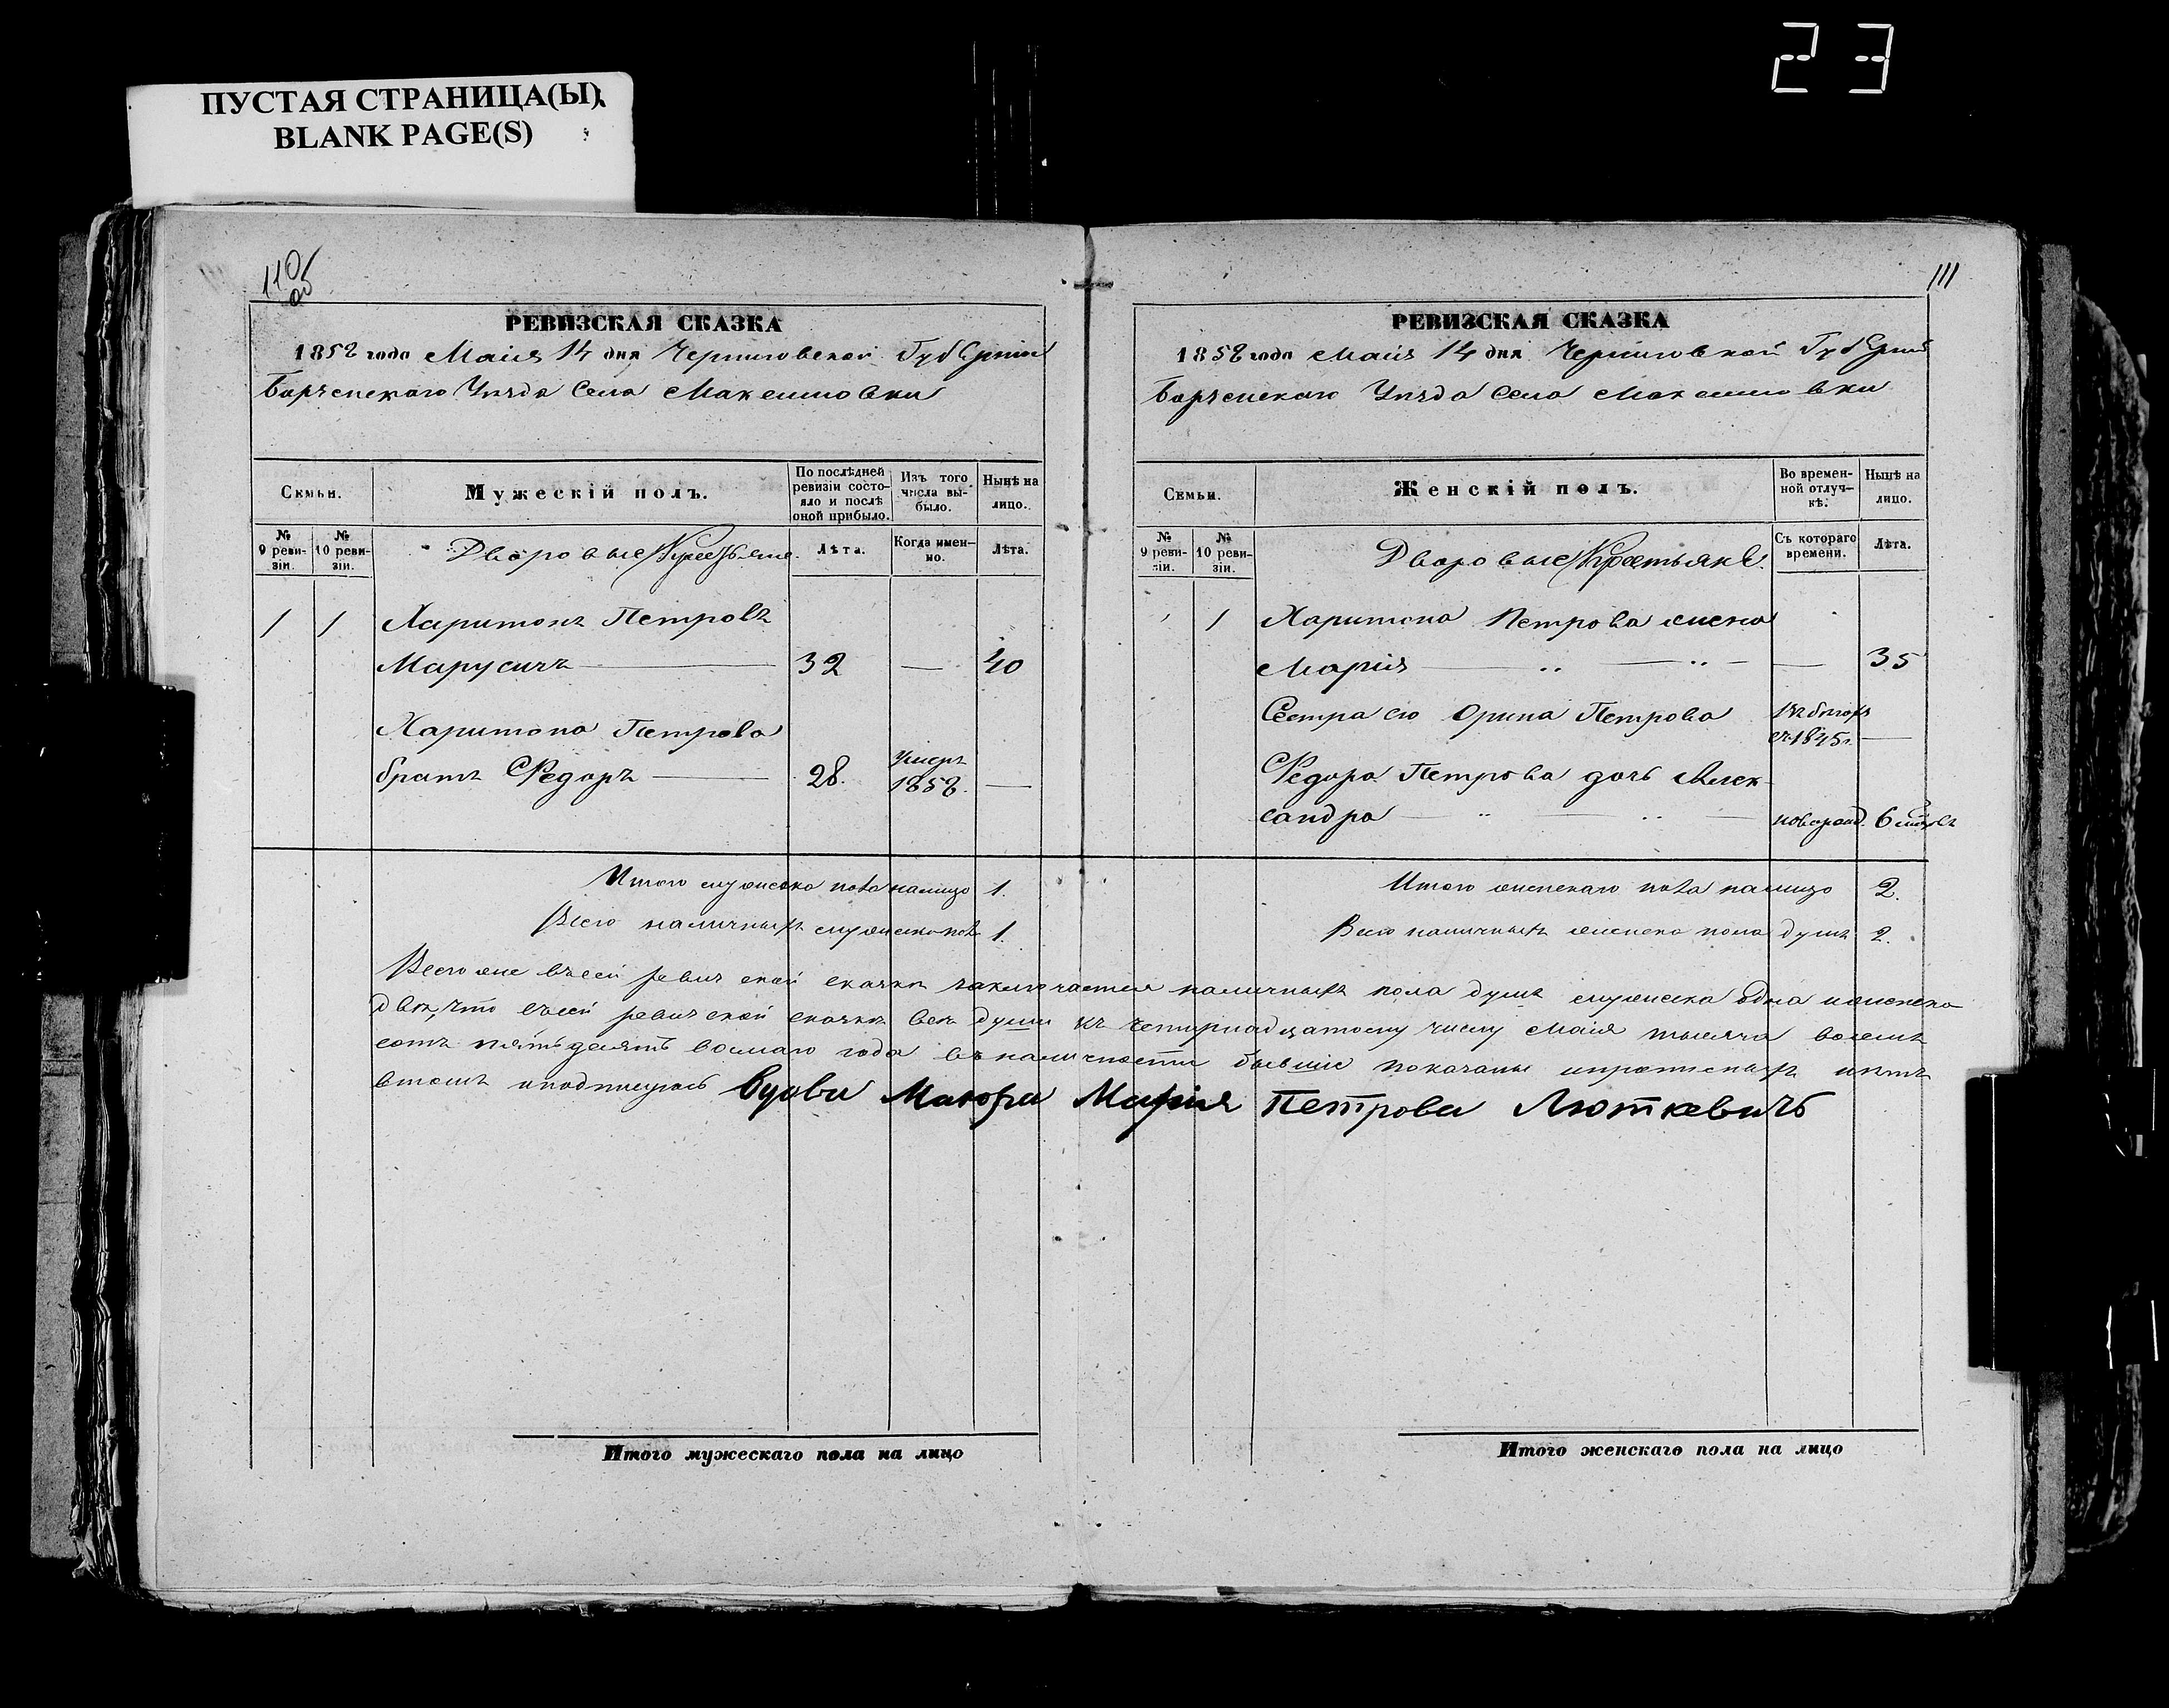 23
ПУСТАЯ СТРАНИЦА(Ы)
BLANK PAGE(S)
110
об
РЕВИЗСКАЯ СКАЗКА
1858 года Маия 14 дня Черниговской Губерніи
Борзенскаго Уѣзда Села Максимовки
Семьи.
Мужескій полъ.
По послѣдней ревизіи состояло и послѣ оной прибыло.
Изъ того числа выбыло.
Нынѣ на лицо.
№ 9 ревизіи.
№ 10 ревизіи.
Дворовые Крестьяне.
Лѣта.
Когда именно.
Лѣта.
1 1 Харитонъ Петровъ
Марусичъ 32 — 40
Харитона Петрова
братъ Федоръ 28. умеръ 1858. —
Итого мужеска пола налицо 1.
Всего наличныхъ мужеска пола 1.
111
РЕВИЗСКАЯ СКАЗКА
1858 года Маия 14 дня Черниговской Губерніи
Борзенскаго Уѣзда Села Максимовки
Семьи.
Женскій полъ.
Во временной отлучкѣ.
Нынѣ на лицо.
№ 9 ревизіи.
№ 10 ревизіи.
Дворовые Крестьяне.
Съ котораго времени.
Лѣта.
1 1 Харитона Петрова жена
Марія — 35
Сестра его Орина Петрова въ бѣгахъ
съ 1845 г. —
Федора Петрова дочь Алек-
сандра новорожд. 6
Итого женскаго пола налицо 2.
Всего наличныхъ женска пола душъ 2.
Всего же въ сей ревизской сказкѣ заключается наличныхъ пола душъ мужеска одна и женска
двѣ, что въ сей ревизской сказкѣ всѣ души къ четырнадцатому числу Маия тысяча восемь
сотъ пятьдесятъ восмаго года въ наличности бывшіе показаны и нѣтъ
втомъ и подпишусь вдова Маіора Марія Петрова Люткевичъ
Итого мужескаго пола на лицо
Итого женскаго пола на лицо